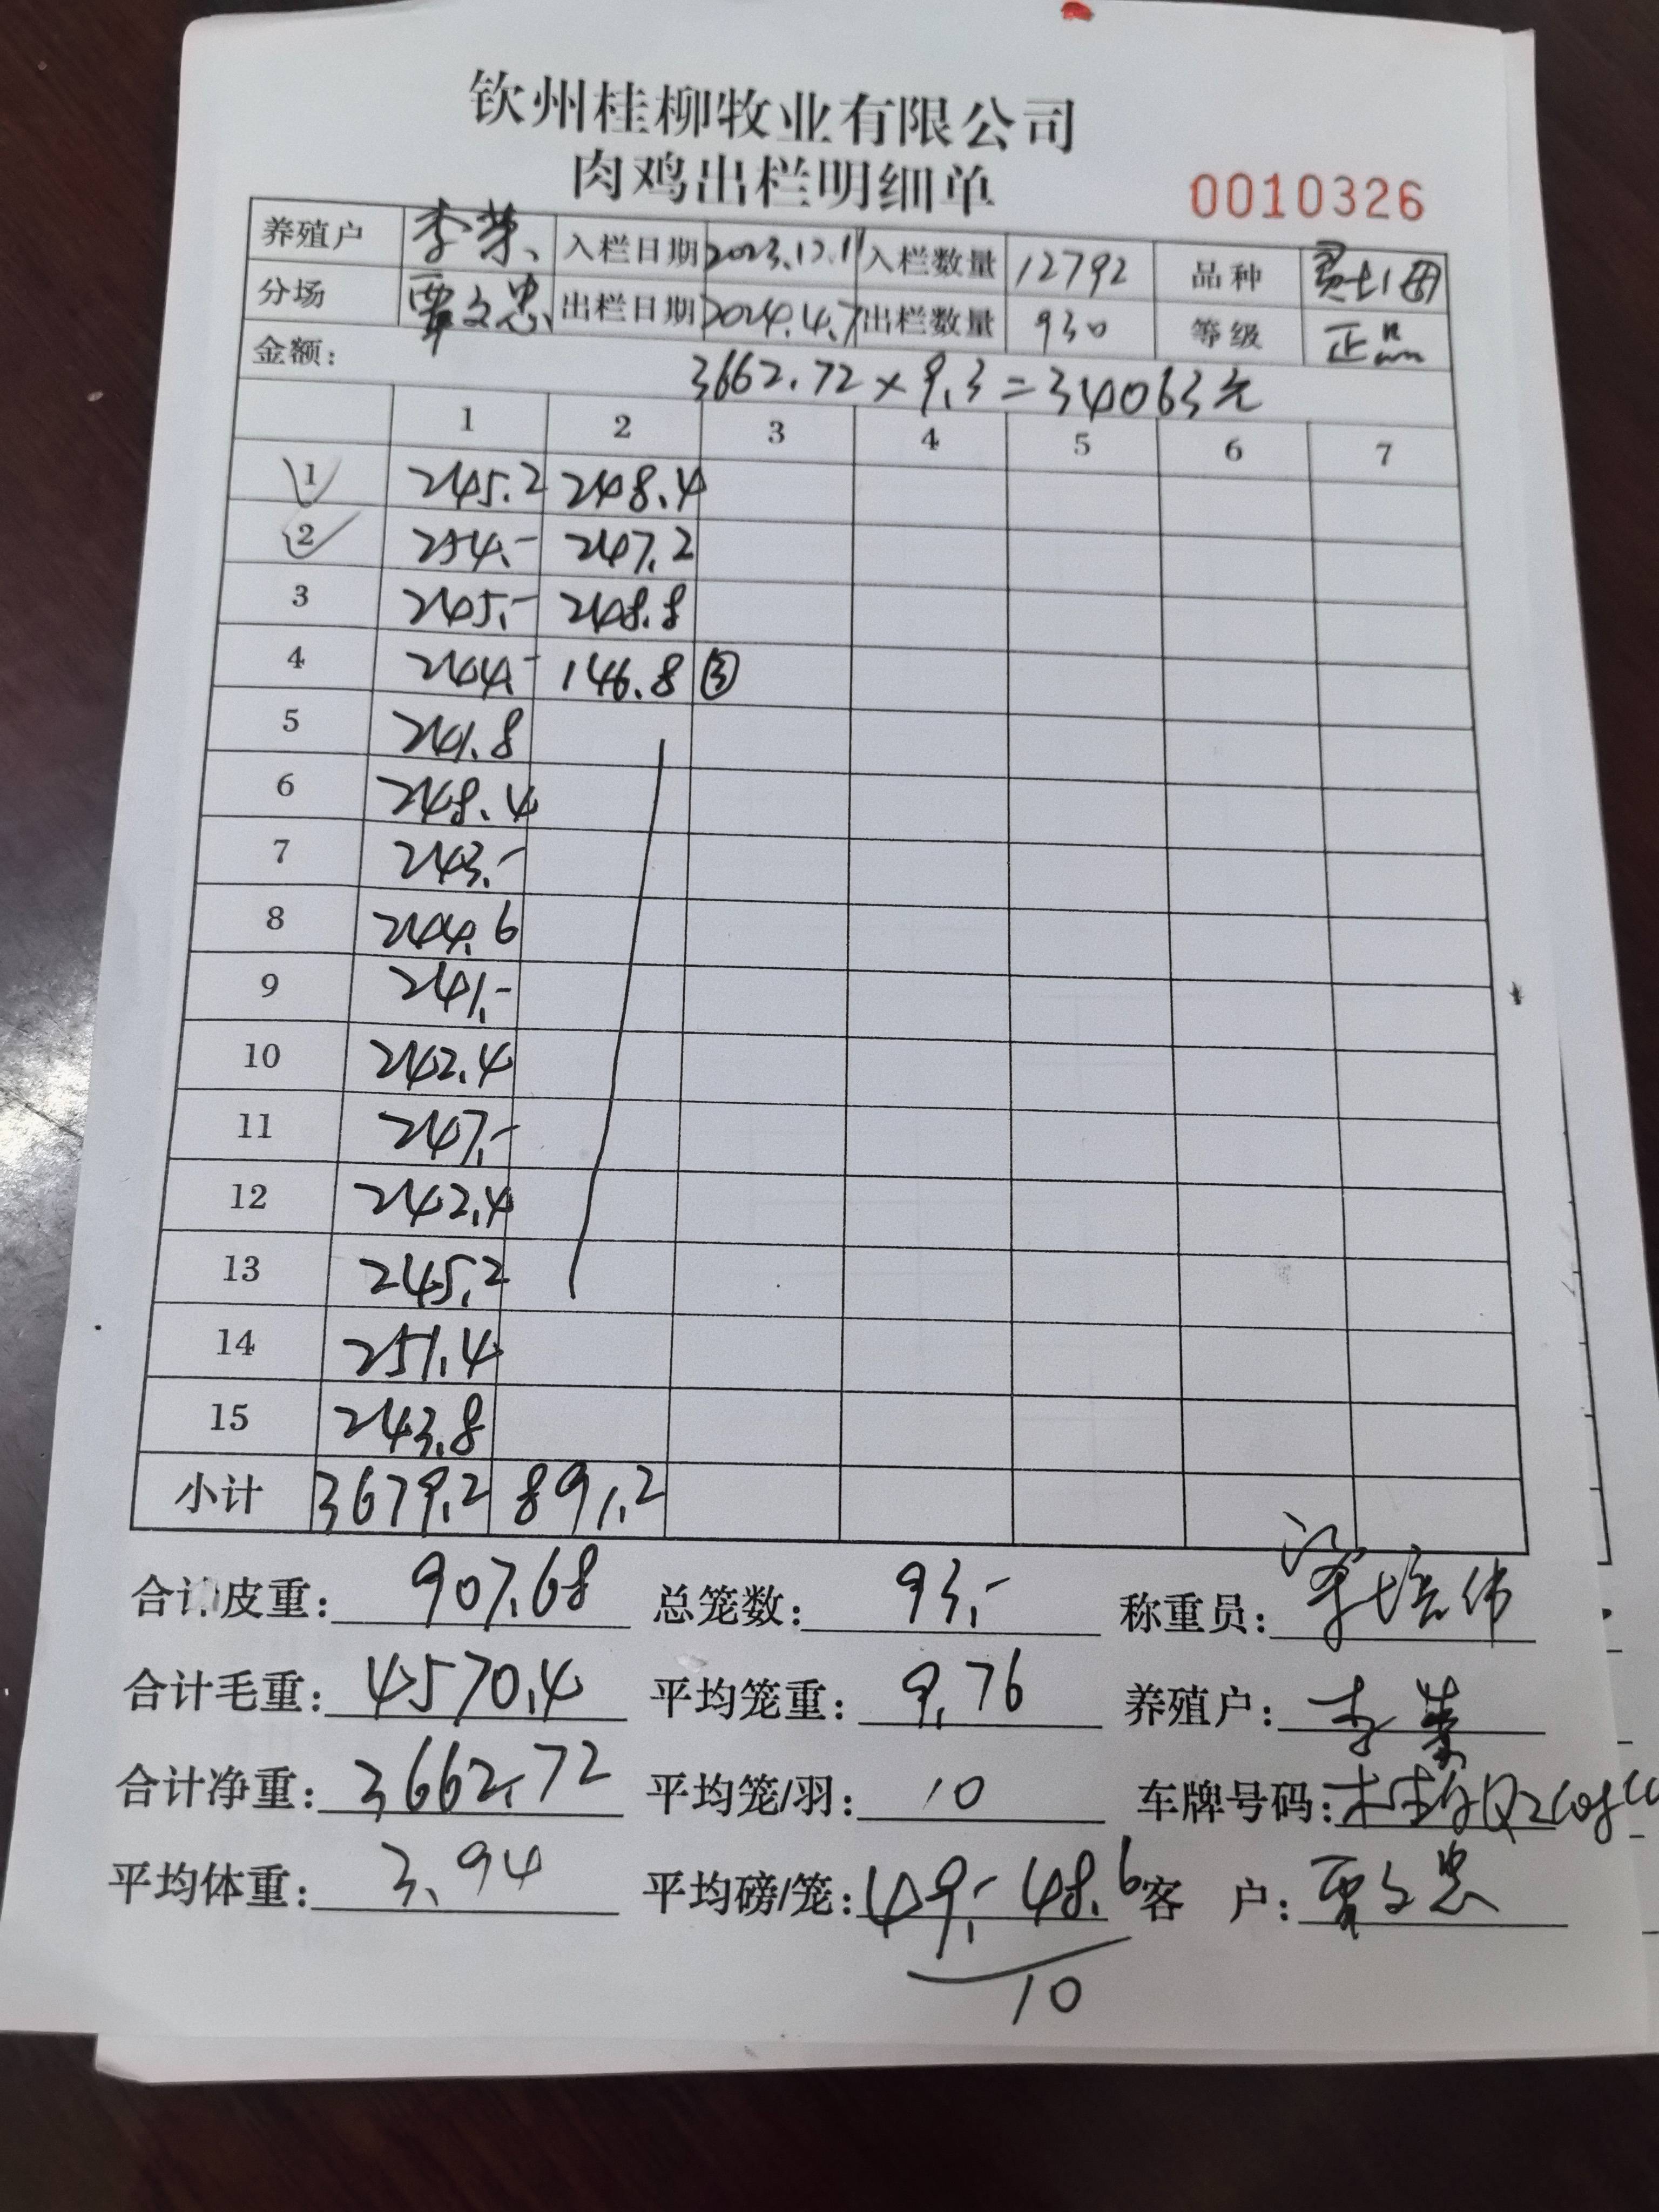 钦州桂柳牧业有限公司
肉鸡出栏明细单
0010326
养殖户 李荣、 入栏日期 2023.12.11 入栏数量 12792 品种
分场 覃文忠 出栏日期 2024.4.7 出栏数量 930 等级 正品
金额: 3662.72×9.3=34063元
1 2 3 4 5 6 7
1 245.2 248.4
2 254.- 247.2
3 245.- 248.8
4 244.- 146.8 ③
5 241.8
6 248.4
7 243.-
8 244.6
9 241.-
10 242.4
11 247.-
12 242.4
13 245.2
14 251.4
15 243.8
小计 3679.2 891.2
合计皮重: 907.68 总笼数: 93.- 称重员: 梁培伟
合计毛重: 4570.4 平均笼重: 9.76 养殖户: 李荣
合计净重: 3662.72 平均笼/羽: 10 车牌号码:
平均体重: 3.94 平均磅/笼: 49.- 48.6 客 户: 覃文忠
10